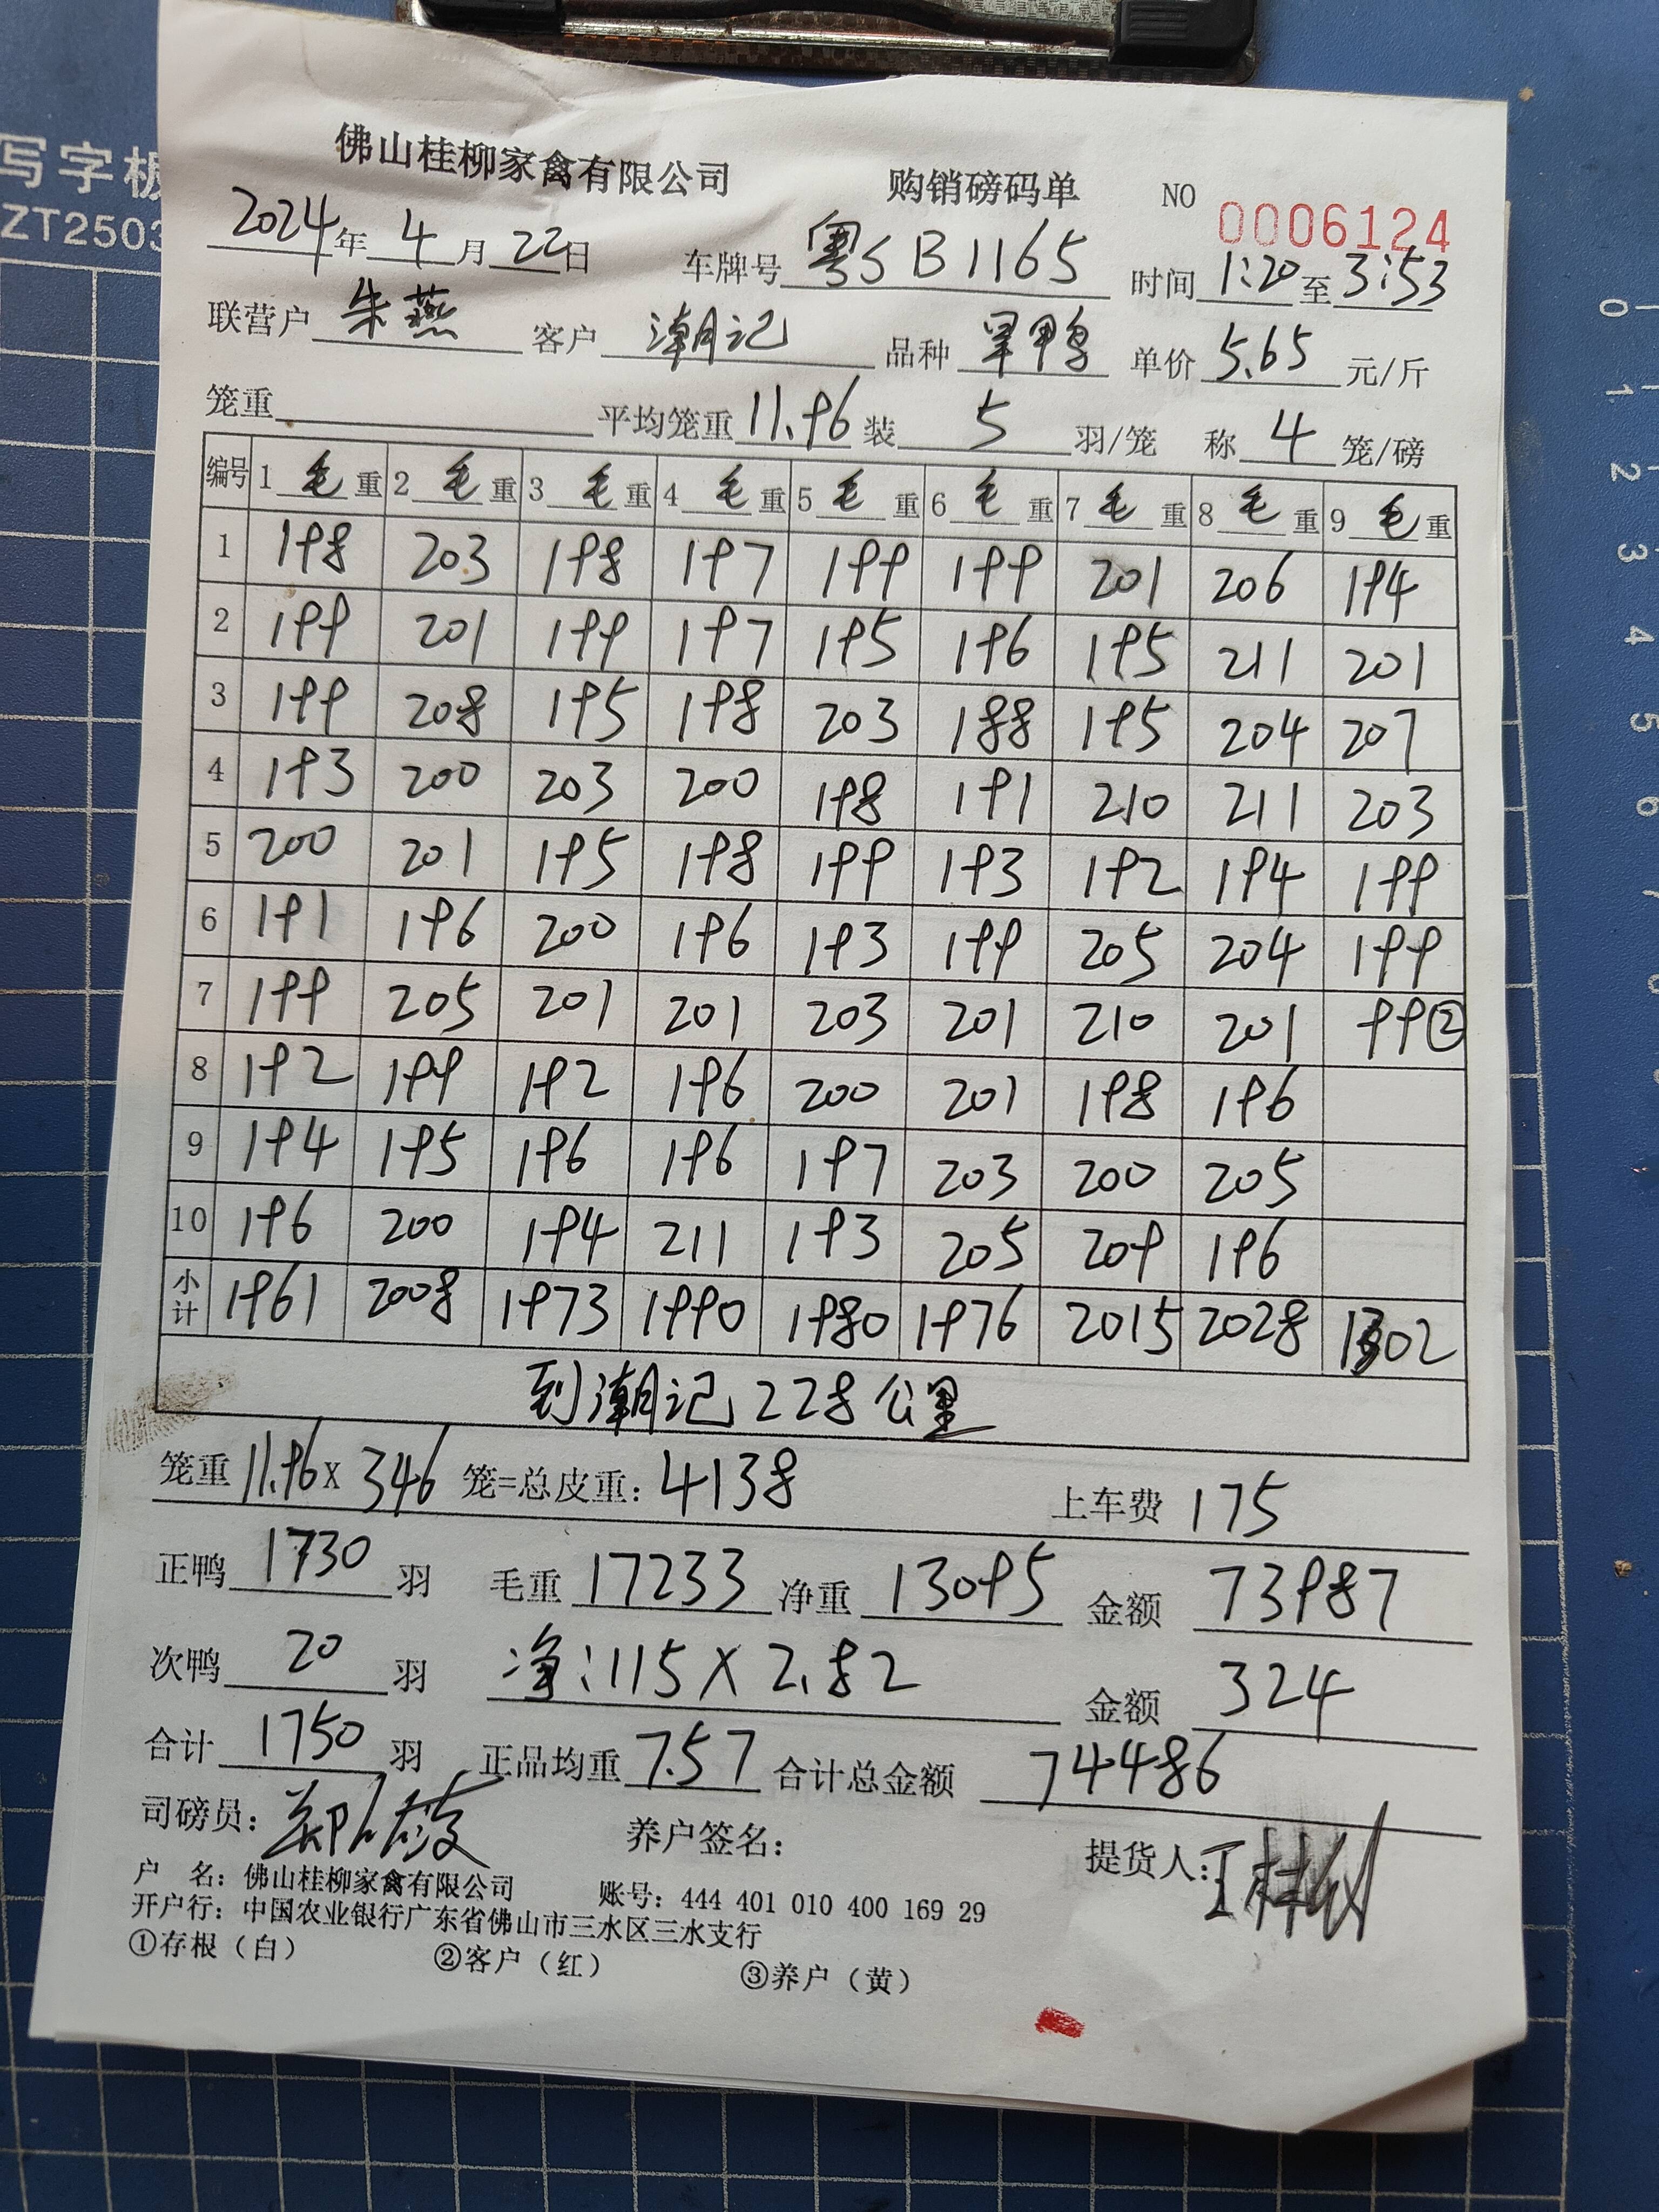 写字板
ZT2503
佛山桂柳家禽有限公司 购销磅码单 NO 0006124
2024年4月22日 车牌号 粤SB1165 时间 1:20 至 3:53
联营户 朱燕 客户 潮记 品种 旱鸭 单价 5.65 元/斤
笼重 平均笼重 11.96 装 5 羽/笼 称 4 笼/磅
编号 1 毛 重 2 毛 重 3 毛 重 4 毛 重 5 毛 重 6 毛 重 7 毛 重 8 毛 重 9 毛 重
1 198 203 198 197 199 199 201 206 194
2 199 201 199 197 195 196 195 211 201
3 199 208 195 198 203 188 195 204 207
4 193 200 203 200 198 191 210 211 203
5 200 201 195 198 199 193 192 194 199
6 191 196 200 196 193 199 205 204 199
7 199 205 201 201 203 201 210 201 99②
8 192 199 192 196 200 201 198 196
9 194 195 196 196 197 203 200 205
10 196 200 194 211 193 205 209 196
小计 1961 2008 1973 1990 1980 1976 2015 2028 1302
到潮记228公里
笼重 11.96 x 346 笼=总皮重: 4138 上车费 175
正鸭 1730 羽 毛重 17233 净重 13095 金额 73987
次鸭 20 羽 净:115 X 2.82 金额 324
合计 1750 羽 正品均重 7.57 合计总金额 74486
司磅员: 养户签名: 提货人:
户 名: 佛山桂柳家禽有限公司 账号: 444 401 010 400 169 29
开户行: 中国农业银行广东省佛山市三水区三水支行
①存根（白） ②客户（红） ③养户（黄）
0
1
2
3
4
5
6
7